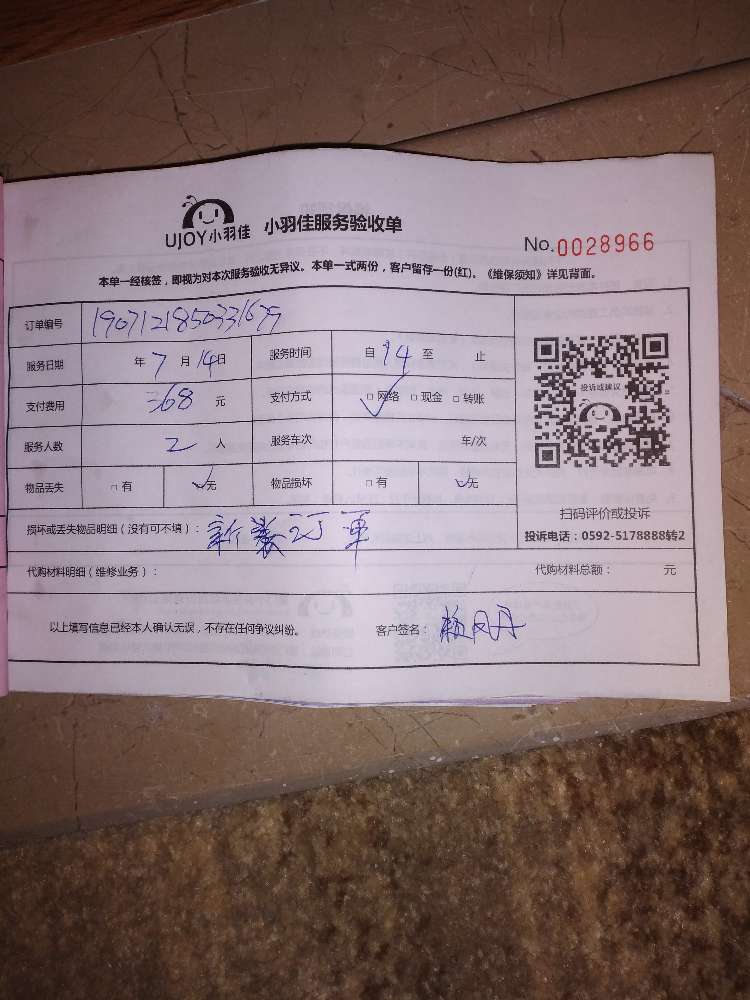 UJOY小羽佳 小羽佳服务验收单
No.0028966
本单一经核签，即视为对本次服务验收无异议。本单一式两份，客户留存一份(红)。《维保须知》详见背面。
订单编号
服务日期 年 7 月 14 日 服务时间 自 14 至 止
支付费用 368 元 支付方式 □ 网络 □ 现金 □ 转账
服务人数 2 人 服务车次 车/次
物品丢失 □ 有 □ 无 物品损坏 □ 有 □ 无
投诉或建议
扫码评价或投诉
投诉电话：0592-5178888转2
损坏或丢失物品明细（没有可不填）： 新装订单
代购材料明细（维修业务）： 代购材料总额： 元
以上填写信息已经本人确认无误，不存在任何争议纠纷。 客户签名：